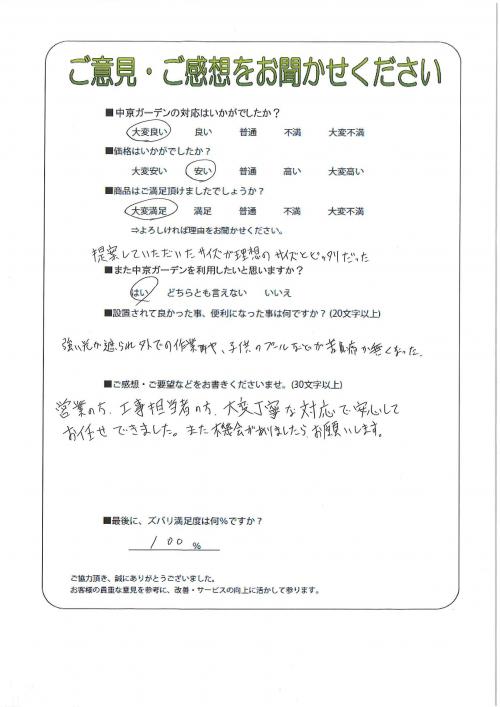 ご意見・ご感想をお聞かせください
■中京ガーデンの対応はいかがでしたか？
大変良い 良い 普通 不満 大変不満
■価格はいかがでしたか？
大変安い 安い 普通 高い 大変高い
■商品はご満足頂けましたでしょうか？
大変満足 満足 普通 不満 大変不満
⇒よろしければ理由をお聞かせください。
提案していただいたサイズが理想のサイズとピッタリだった
■また中京ガーデンを利用したいと思いますか？
はい どちらとも言えない いいえ
■設置されて良かった事、便利になった事は何ですか？(20文字以上)
強い光が遮られ外での作業や、子供のプールなどが苦痛が無くなった.
■ご感想・ご要望などをお書きくださいませ。(30文字以上)
営業の方、工事担当者の方、大変丁寧な対応で安心して
お任せできました。また機会がありましたらお願いします。
■最後に、ズバリ満足度は何％ですか？
100 ％
ご協力頂き、誠にありがとうございました。
お客様の貴重な意見を参考に、改善・サービスの向上に活かして参ります。